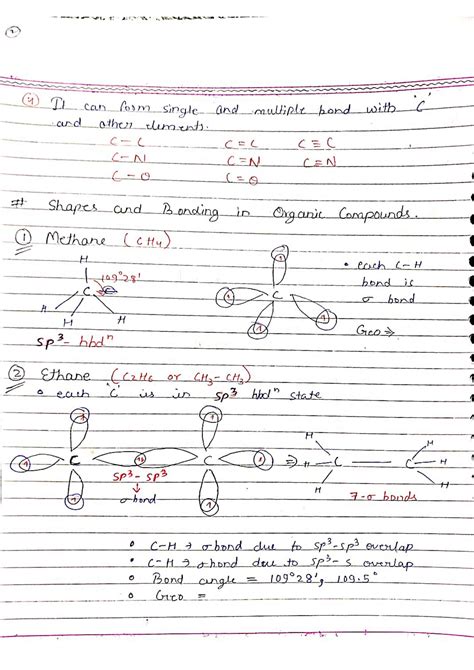 (4) It can form single and multiple bond with 'C'
and other elements.
C – C C = C C ≡ C
C – N C = N C ≡ N
C – O C = O
# Shapes and Bonding in Organic Compounds.
① Methane (CH4)
H
109°28'
C
H H H
sp³- hbdⁿ
1
1 C 1
1
• each C–H
bond is
σ bond
Geo ⇒
② Ethane (C2H6 or CH3–CH3)
• each 'C' is in sp³ hbdⁿ state
1 1
1 C 1 C 1 ⇒
sp³ – sp³
↓
σ bond
1 1
H H
H – C – C – H
H H
7-σ bonds
• C–H → σ bond due to sp³-sp³ overlap
• C–H → σ bond due to sp³-s overlap
• Bond angle = 109°28', 109.5°
• Geo =